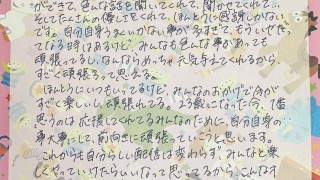 ができて、色んな話を聞いてくれて、聞かせてくれて…
そしてたくさんの優しさをくれて、ほんとうに感謝しかない
です。自分自身うまくいかない事が多すぎて、もういやだ
ってなる時はあるけど、みんなも色んな事があっても
頑張ってるし、なんならめっちゃ元気与えてくれるから、
すごく頑張ろって思える。
ほんとうにいつもいってるけど、みんなのおかげで今が
すごく楽しいし頑張れてる。23歳になった今、1番
思うのは応援してくれてるみんなのために、自分自身の…
事大事にして、前向きに頑張っていこうと思います。
これからも自分らしい配信は変わらず、みんなと楽
しくやっていけたらいいなって思ってるから、こんなオ